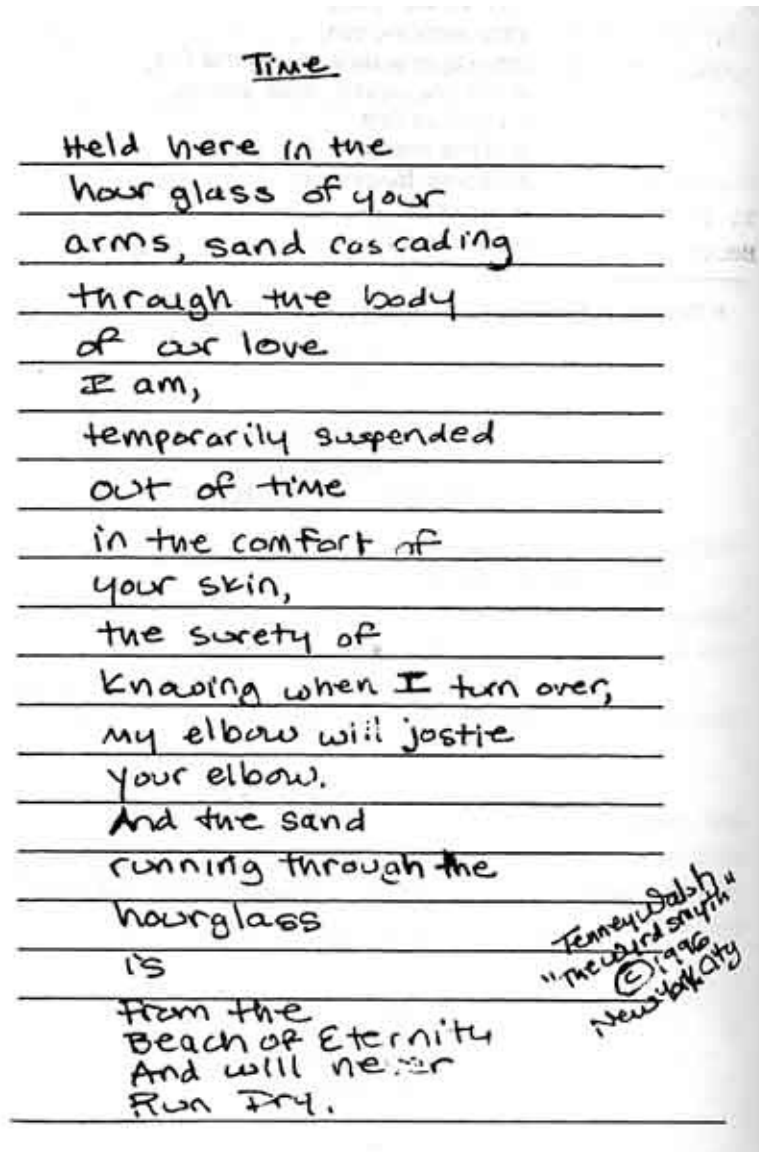 Time
Held here in the
hour glass of your
arms, sand cascading
through the body
of our love
I am,
temporarily suspended
out of time
in the comfort of
your skin,
the surety of
Knowing when I turn over,
my elbow will jostle
your elbow.
And the sand
running through the
hourglass
is
From the
Beach of Eternity
And will never
Run Dry.
Tenney Walsh
"The Wyrd Smyth"
© 1996
New York City